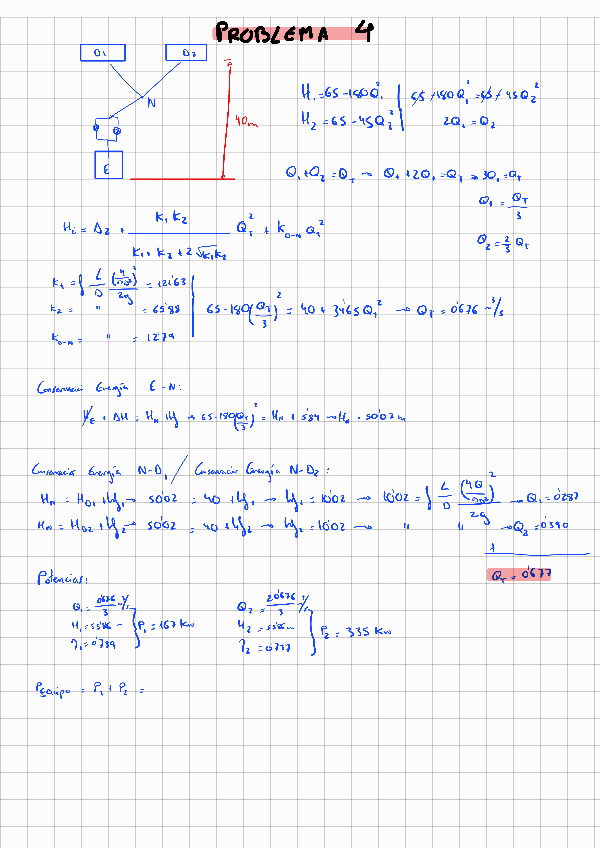 PROBLEMA 4
D1 D2
N
40m
E
H₁ = 65 - 180Q₁² | 65 - 180Q₁² = 65 - 45Q₂²
H₂ = 65 - 45Q₂² | 2Q₁ = Q₂
Q₁ + Q₂ = Q_T → Q₁ + 2Q₁ = Q_T → 3Q₁ = Q_T
Q₁ = Q_T / 3
Q₂ = 2/3 Q_T
Hᵢ = Δz + K₁K₂ / (K₁ + K₂ + 2√K₁K₂) Q_T² + K₀₋N Q_T²
K₁ = f L/D (4/πD²)²/2g = 121'63
K₂ = " = 65'88
K₀₋N = " = 12'79
65 - 180(Q_T/3)² = 40 + 34'65Q_T² → Q_T = 0'676 m³/s
Conservación Energía E-N:
H_E + ΔH = H_N + H_f → 65 - 180(Q_T/3)² = H_N + 5'84 → H_N = 50'02 m
Conservación Energía N-D₁ / Conservación Energía N-D₂:
H_N = H_D1 + H_f1 → 50'02 = 40 + H_f1 → H_f1 = 10'02 → 10'02 = f L/D (4Q/πD²)²/2g → Q₁ = 0'287
H_N = H_D2 + H_f2 → 50'02 = 40 + H_f2 → H_f2 = 10'02 → " " → Q₂ = 0'390
+
Q_T = 0'677
Potencias:
Q₁ = 0'676/3 m³/s Q₂ = 2·0'676/3 m³/s
H₁ = 55'86 m } P₁ = 167 Kw H₂ = 55'86 m } P₂ = 335 Kw
η₁ = 0'739 η₂ = 0'737
P_Equipo = P₁ + P₂ =